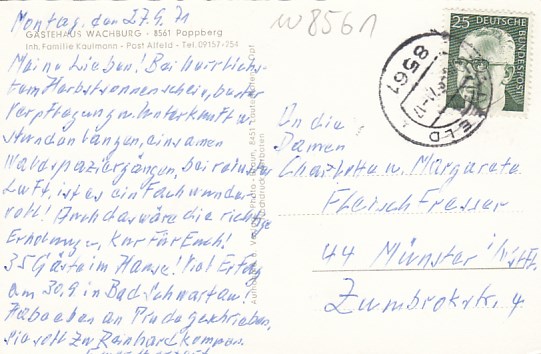 Montag, den 27.9.71
W8561
GÄSTEHAUS WACHBURG - 8561 Poppberg
Inh. Familie Kaulmann - Post Alfeld - Tel. 09157-254
25 DEUTSCHE BUNDESPOST
8561
Meine Lieben! Bei herrlich-
stem Herbstsonnenschein, bester
Verpflegung u. Unterkunft u.
stundenlangen, einsamen
Waldspaziergängen, bei reinster
Luft, ist es einfach wunder
voll! Auch das wäre die richtige
Erholung, Kur für Euch!
35 Gäste im Hause! Viel Erfolg
am 30.9 in Bad Schwartau!
Habe eben an Trude geschrieben,
sie soll zu Reinhard kommen.
An die
Damen
Charlotte u. Margarete
Fleischfresser
44 Münster i/Westf.
Zumbrokstr. 4